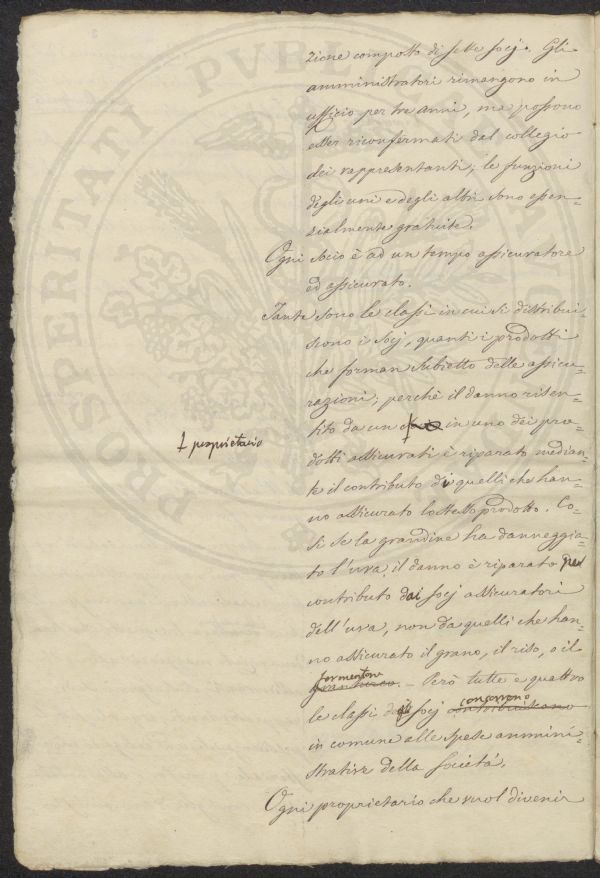 zione composto di sette socj. Gli
amministratori rimangono in
ufficio per tre anni, ma possono
esser riconfermati dal collegio
dei rappresentanti; le funzioni
degli uni e degli altri sono essen=
zialmente gratuite.
Ogni socio è ad un tempo assicuratore
ed assicurato.
Tante sono le classi in cui si distribui=
scono i socj, quanti i prodotti
che forman subietto delle assicu=
razioni; perchè il danno risen=
tito da un in uno dei pro=
proprietario
dotti assicurati è riparato median=
te il contributo di quelli che han=
no assicurato lo stesso prodotto. Co=
sì se la grandine ha danneggia=
to l'uva, il danno è riparato pel
contributo dai socj assicuratori
dell'uva, non da quelli che han=
no assicurato il grano, il riso, o il
formentone
granturco. - Però tutte e quattro
concorrono
le classi di socj contribuiscono
in comune alle spese ammini=
strative della Società.
Ogni proprietario che vuol divenir
PROSPERITATI PVBL